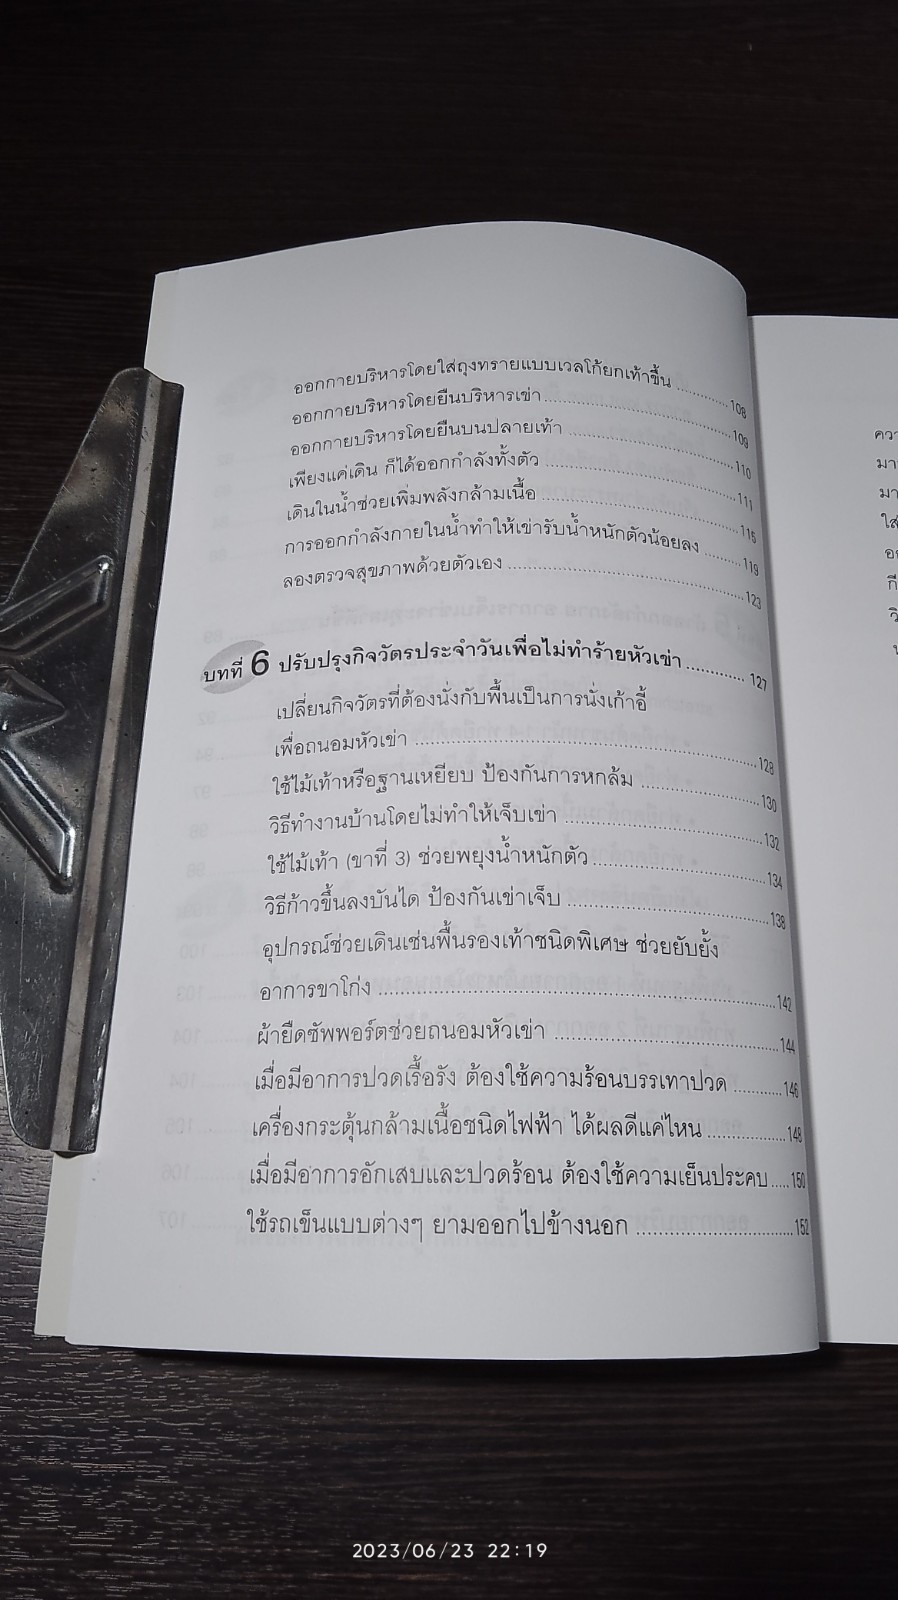 ออกกายบริหารโดยใส่ถุงทรายแบบเวลโก้ยกเท้าขึ้น ............108
ออกกายบริหารโดยยืนบริหารเข่า..............................109
ออกกายบริหารโดยยืนบนปลายเท้า ..........................110
เพียงแค่เดิน ก็ได้ออกกำลังทั้งตัว ..............................111
เดินในน้ำช่วยเพิ่มพลังกล้ามเนื้อ ..............................115
การออกกำลังกายในน้ำทำให้เข่ารับน้ำหนักตัวน้อยลง ........119
ลองตรวจสุขภาพด้วยตัวเอง ....................................123
บทที่ 6 ปรับปรุงกิจวัตรประจำวันเพื่อไม่ทำร้ายหัวเข่า............127
เปลี่ยนกิจวัตรที่ต้องนั่งกับพื้นเป็นการนั่งเก้าอี้
เพื่อถนอมหัวเข่า ..................................................128
ใช้ไม้เท้าหรือฐานเหยียบ ป้องกันการหกล้ม ..................130
วิธีทำงานบ้านโดยไม่ทำให้เจ็บเข่า ..............................132
ใช้ไม้เท้า (ขาที่ 3) ช่วยพยุงน้ำหนักตัว..........................134
วิธีก้าวขึ้นลงบันได ป้องกันเข่าเจ็บ ..............................138
อุปกรณ์ช่วยเดินเช่นพื้นรองเท้าชนิดพิเศษ ช่วยยับยั้ง
อาการขาโก่ง ......................................................142
ผ้ายืดซัพพอร์ตช่วยถนอมหัวเข่า ................................144
เมื่อมีอาการปวดเรื้อรัง ต้องใช้ความร้อนบรรเทาปวด ..........146
เครื่องกระตุ้นกล้ามเนื้อชนิดไฟฟ้า ได้ผลดีแค่ไหน..............148
เมื่อมีอาการอักเสบและปวดร้อน ต้องใช้ความเย็นประคบ.....150
ใช้รถเข็นแบบต่างๆ ยามออกไปข้างนอก ........................152
2023/06/23 22:19